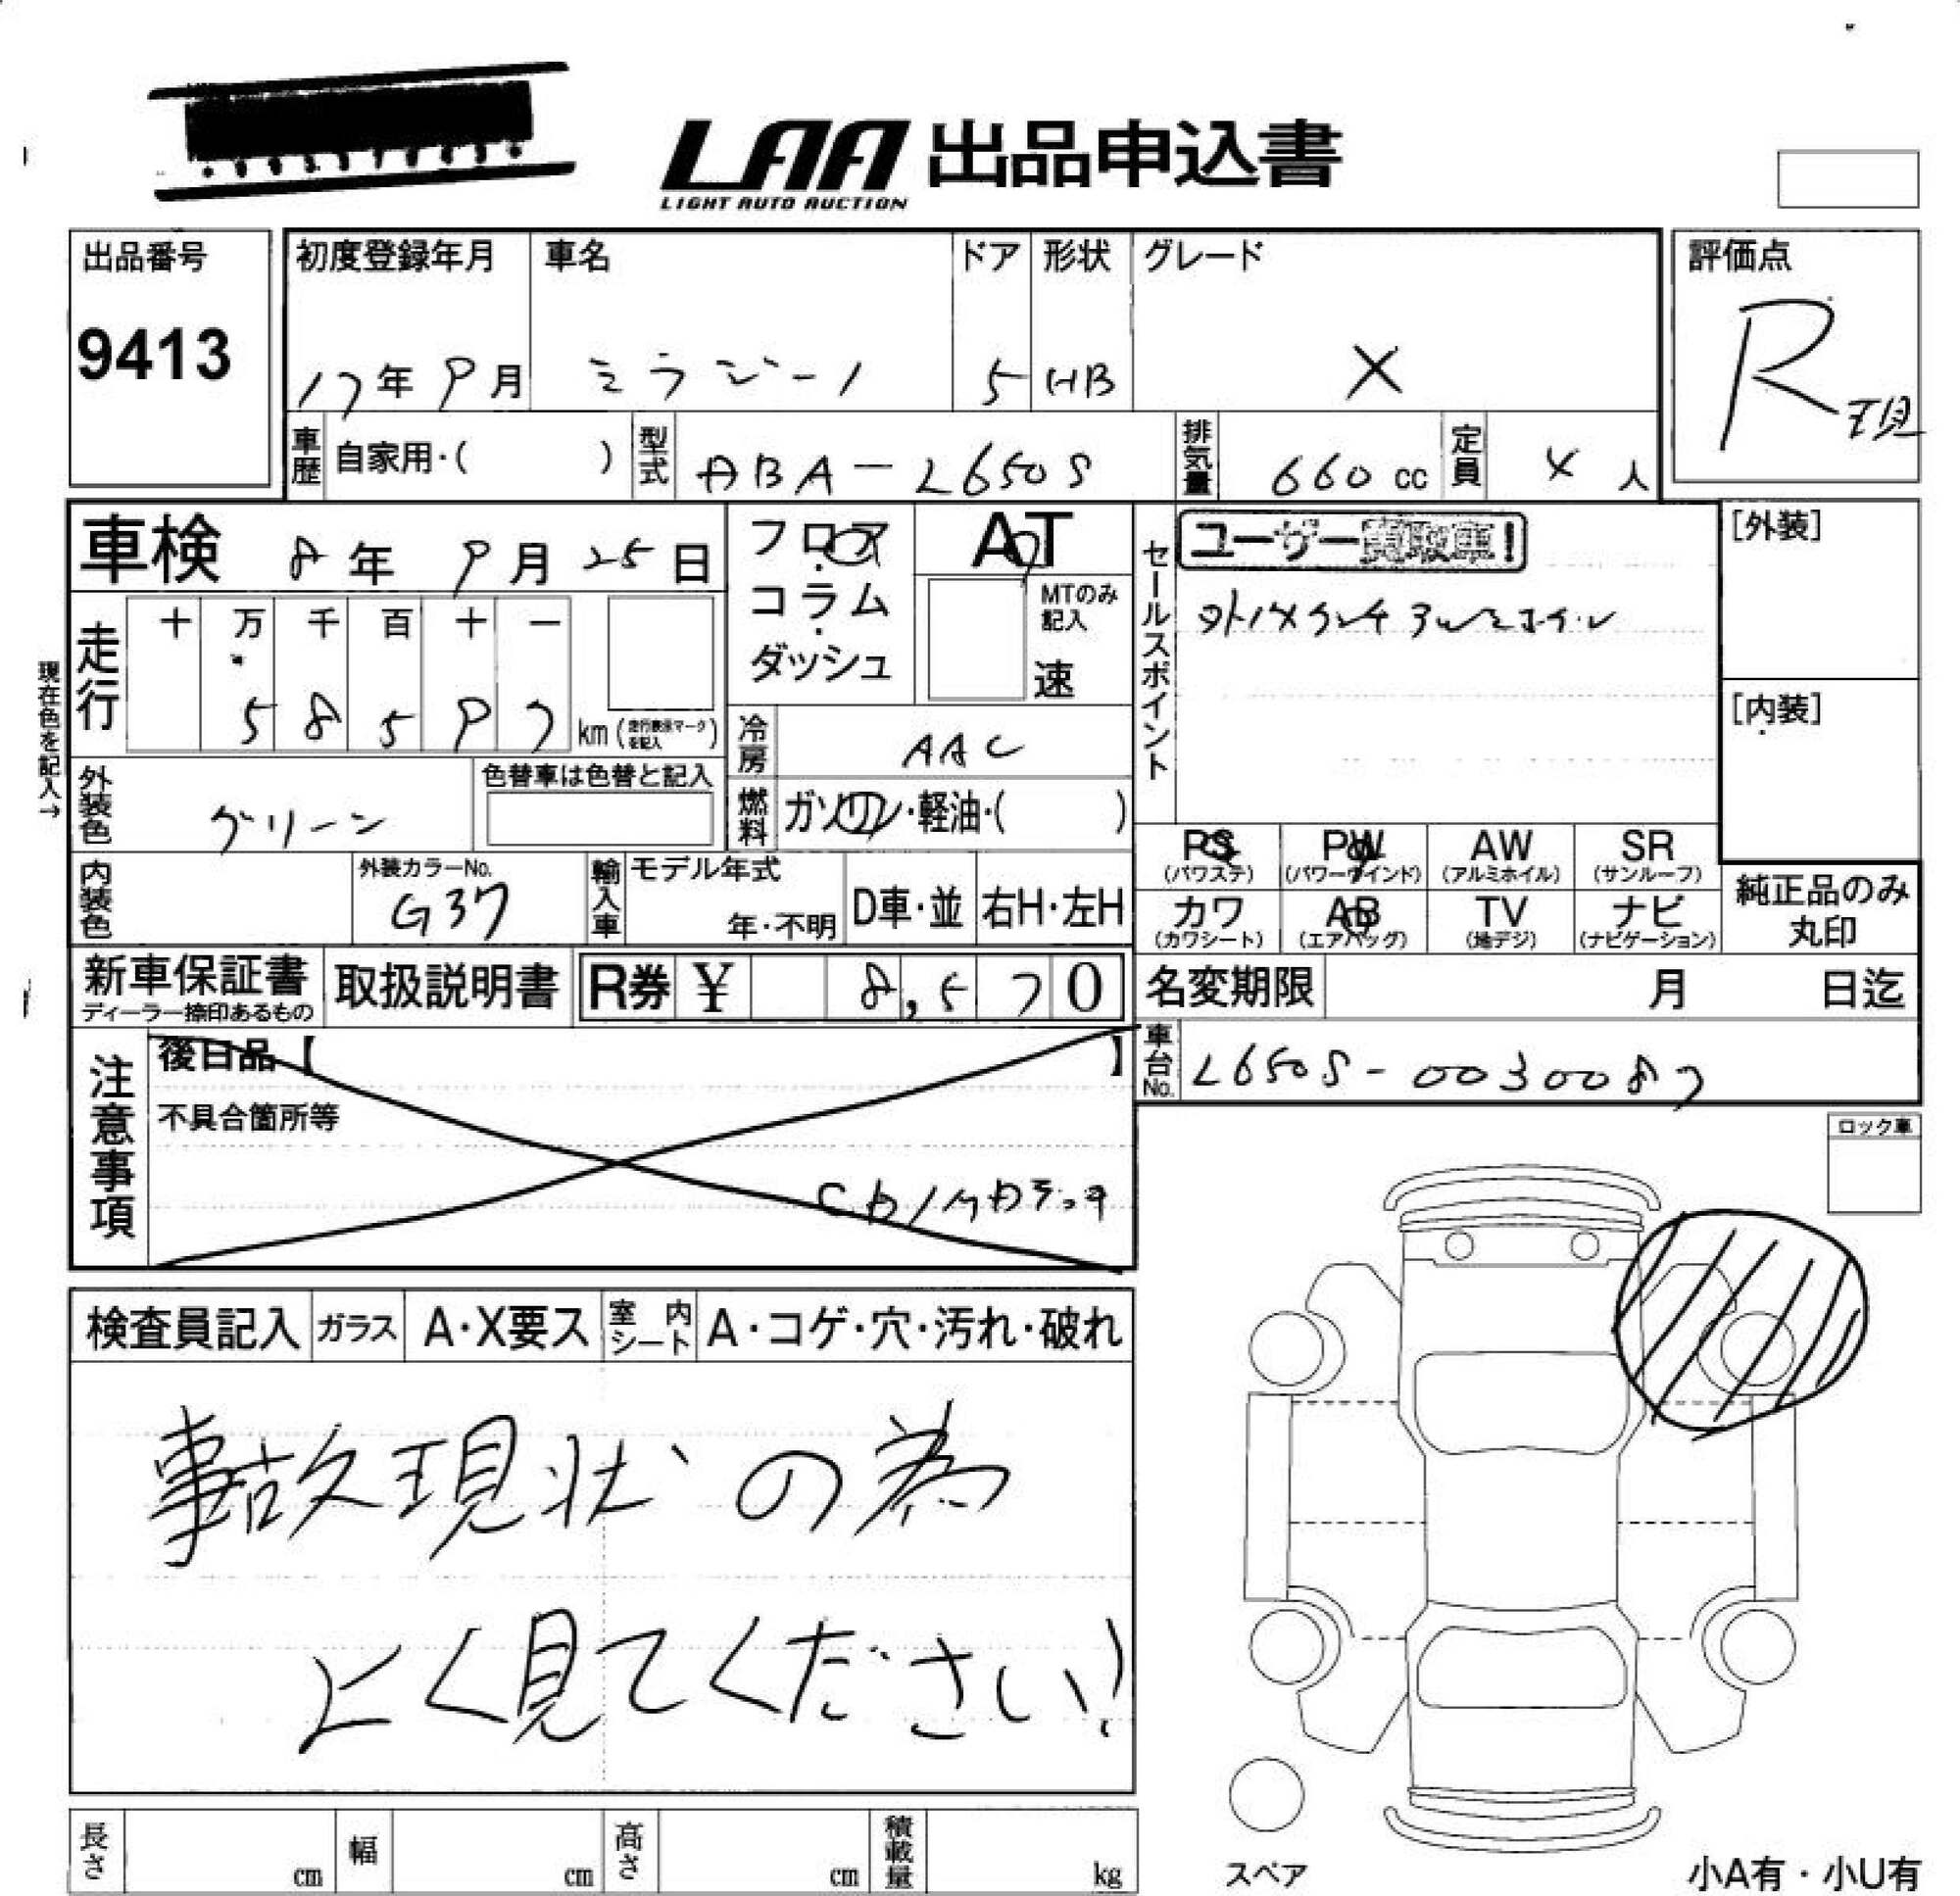 LAA 出品申込書
LIGHT AUTO AUCTION
出品番号
9413
初度登録年月
17年 9月
車名
ミラジーノ
ドア
5
形状
HB
グレード
X
評価点
R
現
車歴
自家用・( )
型式
ABA-L650S
排気量
660 cc
定員
4 人
車検 8年 9月 25日
フロア
コラム
ダッシュ
AT
MTのみ記入
速
セールスポイント
ユーザー買取車!
[外装]
[内装]
現在色を記入→
走行
十 万 千 百 十 一
5 8 5 9 7 km (走行表示マークを記入)
冷房
AAC
燃料
ガソリン・軽油・( )
外装色
グリーン
色替車は色替と記入
内装色
外装カラーNo.
G37
輸入車
モデル年式
年・不明
D車・並
右H・左H
PS
(パワステ)
PW
(パワーウインド)
AW
(アルミホイル)
SR
(サンルーフ)
カワ
(カワシート)
AB
(エアバッグ)
TV
(地デジ)
ナビ
(ナビゲーション)
純正品のみ
丸印
新車保証書
ディーラー捺印あるもの
取扱説明書
R券 ¥ 8,570
名変期限 月 日迄
車台No.
L650S-0030087
注意事項
後日品【 】
不具合箇所等
CD/MDデッキ
ロック車
検査員記入
ガラス
A・X要ス
室内シート
A・コゲ・穴・汚れ・破れ
事故現状の為
よく見てください!
長さ cm
幅 cm
高さ cm
積載量 kg
スペア
小A有・小U有